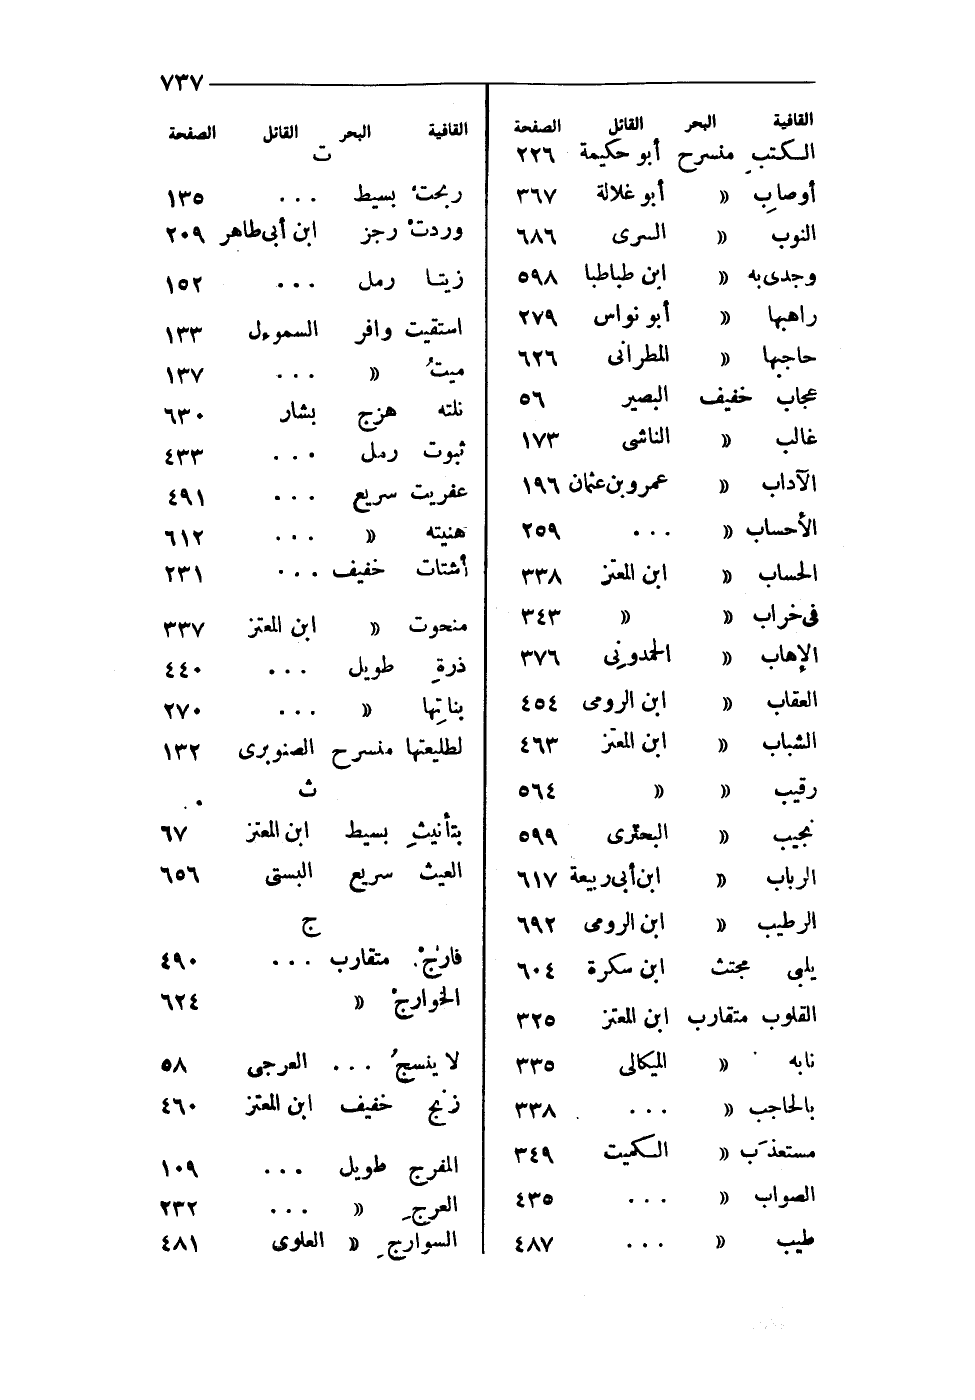 ٧٣٧
القافية البحر القائل الصفحة
الكتبِ منسرح أبو حكيمة ٢٢٦
أوصابِ » أبو غلالة ٣٦٧
النوب » السرى ٦٨٦
وجدى به » ابن طباطبا ٥٩٨
راهبها » أبو نواس ٢٧٩
حاجبها » المطرانى ٦٢٦
عجاب خفيف البصير ٥٦
غالب » الناشى ١٧٣
الآداب » عمرو بن عثمان ١٩٦
الأحساب » ... ٢٥٩
الحساب » ابن المعتز ٣٣٨
فى خراب » » ٣٤٣
الإهاب » الحمدونى ٣٧٦
العقاب » ابن الرومى ٤٥٤
الشباب » ابن المعتز ٤٦٣
رقيب » » ٥٦٤
نجيب » البحترى ٥٩٩
الرباب » ابن أبى ربيعة ٦١٧
الرطيب » ابن الرومى ٦٩٢
يلبى مجتث ابن سكرة ٦٠٤
القلوب متقارب ابن المعتز ٣٢٥
نابه » الميكالى ٣٣٥
بالحاجب » ... ٣٣٨
مستعذَب » الكميت ٣٤٩
الصواب » ... ٤٣٥
طيب » ... ٤٨٧
القافية البحر القائل الصفحة
ت
ربحتْ بسيط ... ١٣٥
وردتْ رجز ابن أبى طاهر ٢٠٩
زيتا رمل ... ١٥٢
استقيت وافر السموءل ١٣٣
ميتُ » ... ١٣٧
نلته هزج بشار ٦٣٠
ثبوت رمل ... ٤٣٣
عفريت سريع ... ٤٩١
هنيته » ... ٦١٢
أشتات خفيف ... ٢٣١
منحوت » ابن المعتز ٣٣٧
ذرةِ طويل ... ٤٤٠
بناتِها » ... ٢٧٠
لطليعتها منسرح الصنوبرى ١٣٢
ث
بتأنيثِ بسيط ابن المعتز ٦٧
العيث سريع البستى ٦٥٦
ج
فارجْ متقارب ... ٤٩٠
الخوارجْ » ٦٢٤
لا ينسجُ ... العرجى ٥٨
زنج خفيف ابن المعتز ٤٦٠
المفرج طويل ... ١٠٩
العرجِ » ... ٢٣٢
السوارجِ » العلوى ٤٨١